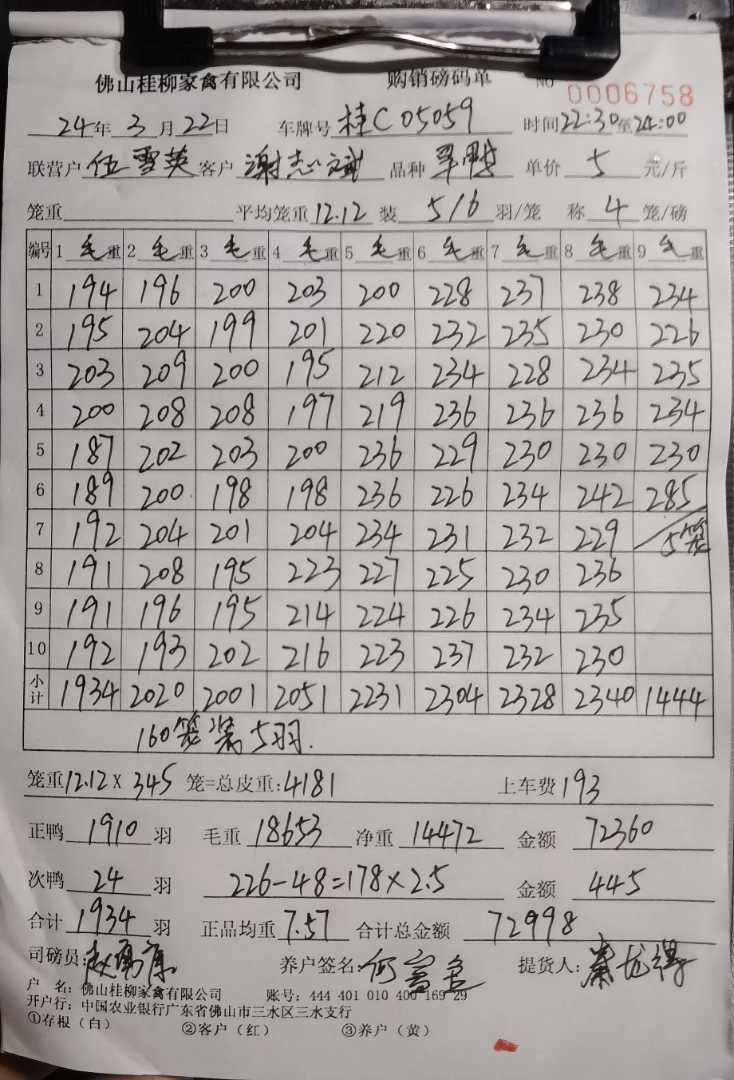 佛山桂柳家禽有限公司 购销磅码单 NO 0006758
24年 3月 22日 车牌号 桂C05059 时间22:30至24:00
联营户 伍雪英 客户 谢志斌 品种 单价 5 元/斤
笼重 平均笼重 12.12 装 5/6 羽/笼 称 4 笼/磅
编号 1 毛重 2 毛重 3 毛重 4 毛重 5 毛重 6 毛重 7 毛重 8 毛重 9 毛重
1 194 196 200 203 200 228 237 238 234
2 195 204 199 201 220 232 235 230 226
3 203 209 200 195 212 234 228 234 235
4 200 208 208 197 219 236 236 236 234
5 187 202 203 200 236 229 230 230 230
6 189 200 198 198 236 226 234 242 285
7 192 204 201 204 234 231 232 229 5笼
8 191 208 195 223 227 225 230 236
9 191 196 195 214 224 226 234 235
10 192 193 202 216 223 237 232 230
小计 1934 2020 2001 2051 2231 2304 2328 2340 1444
160笼装5羽.
笼重12.12×345 笼=总皮重:4181 上车费 193
正鸭 1910 羽 毛重 18653 净重 14472 金额 72360
次鸭 24 羽 226-48=178×2.5 金额 445
合计 1934 羽 正品均重 7.57 合计总金额 72998
司磅员: 养户签名: 何富金 提货人:
户 名: 佛山桂柳家禽有限公司 账号: 444 401 010 400 169 29
开户行: 中国农业银行广东省佛山市三水区三水支行
①存根（白） ②客户（红） ③养户（黄）